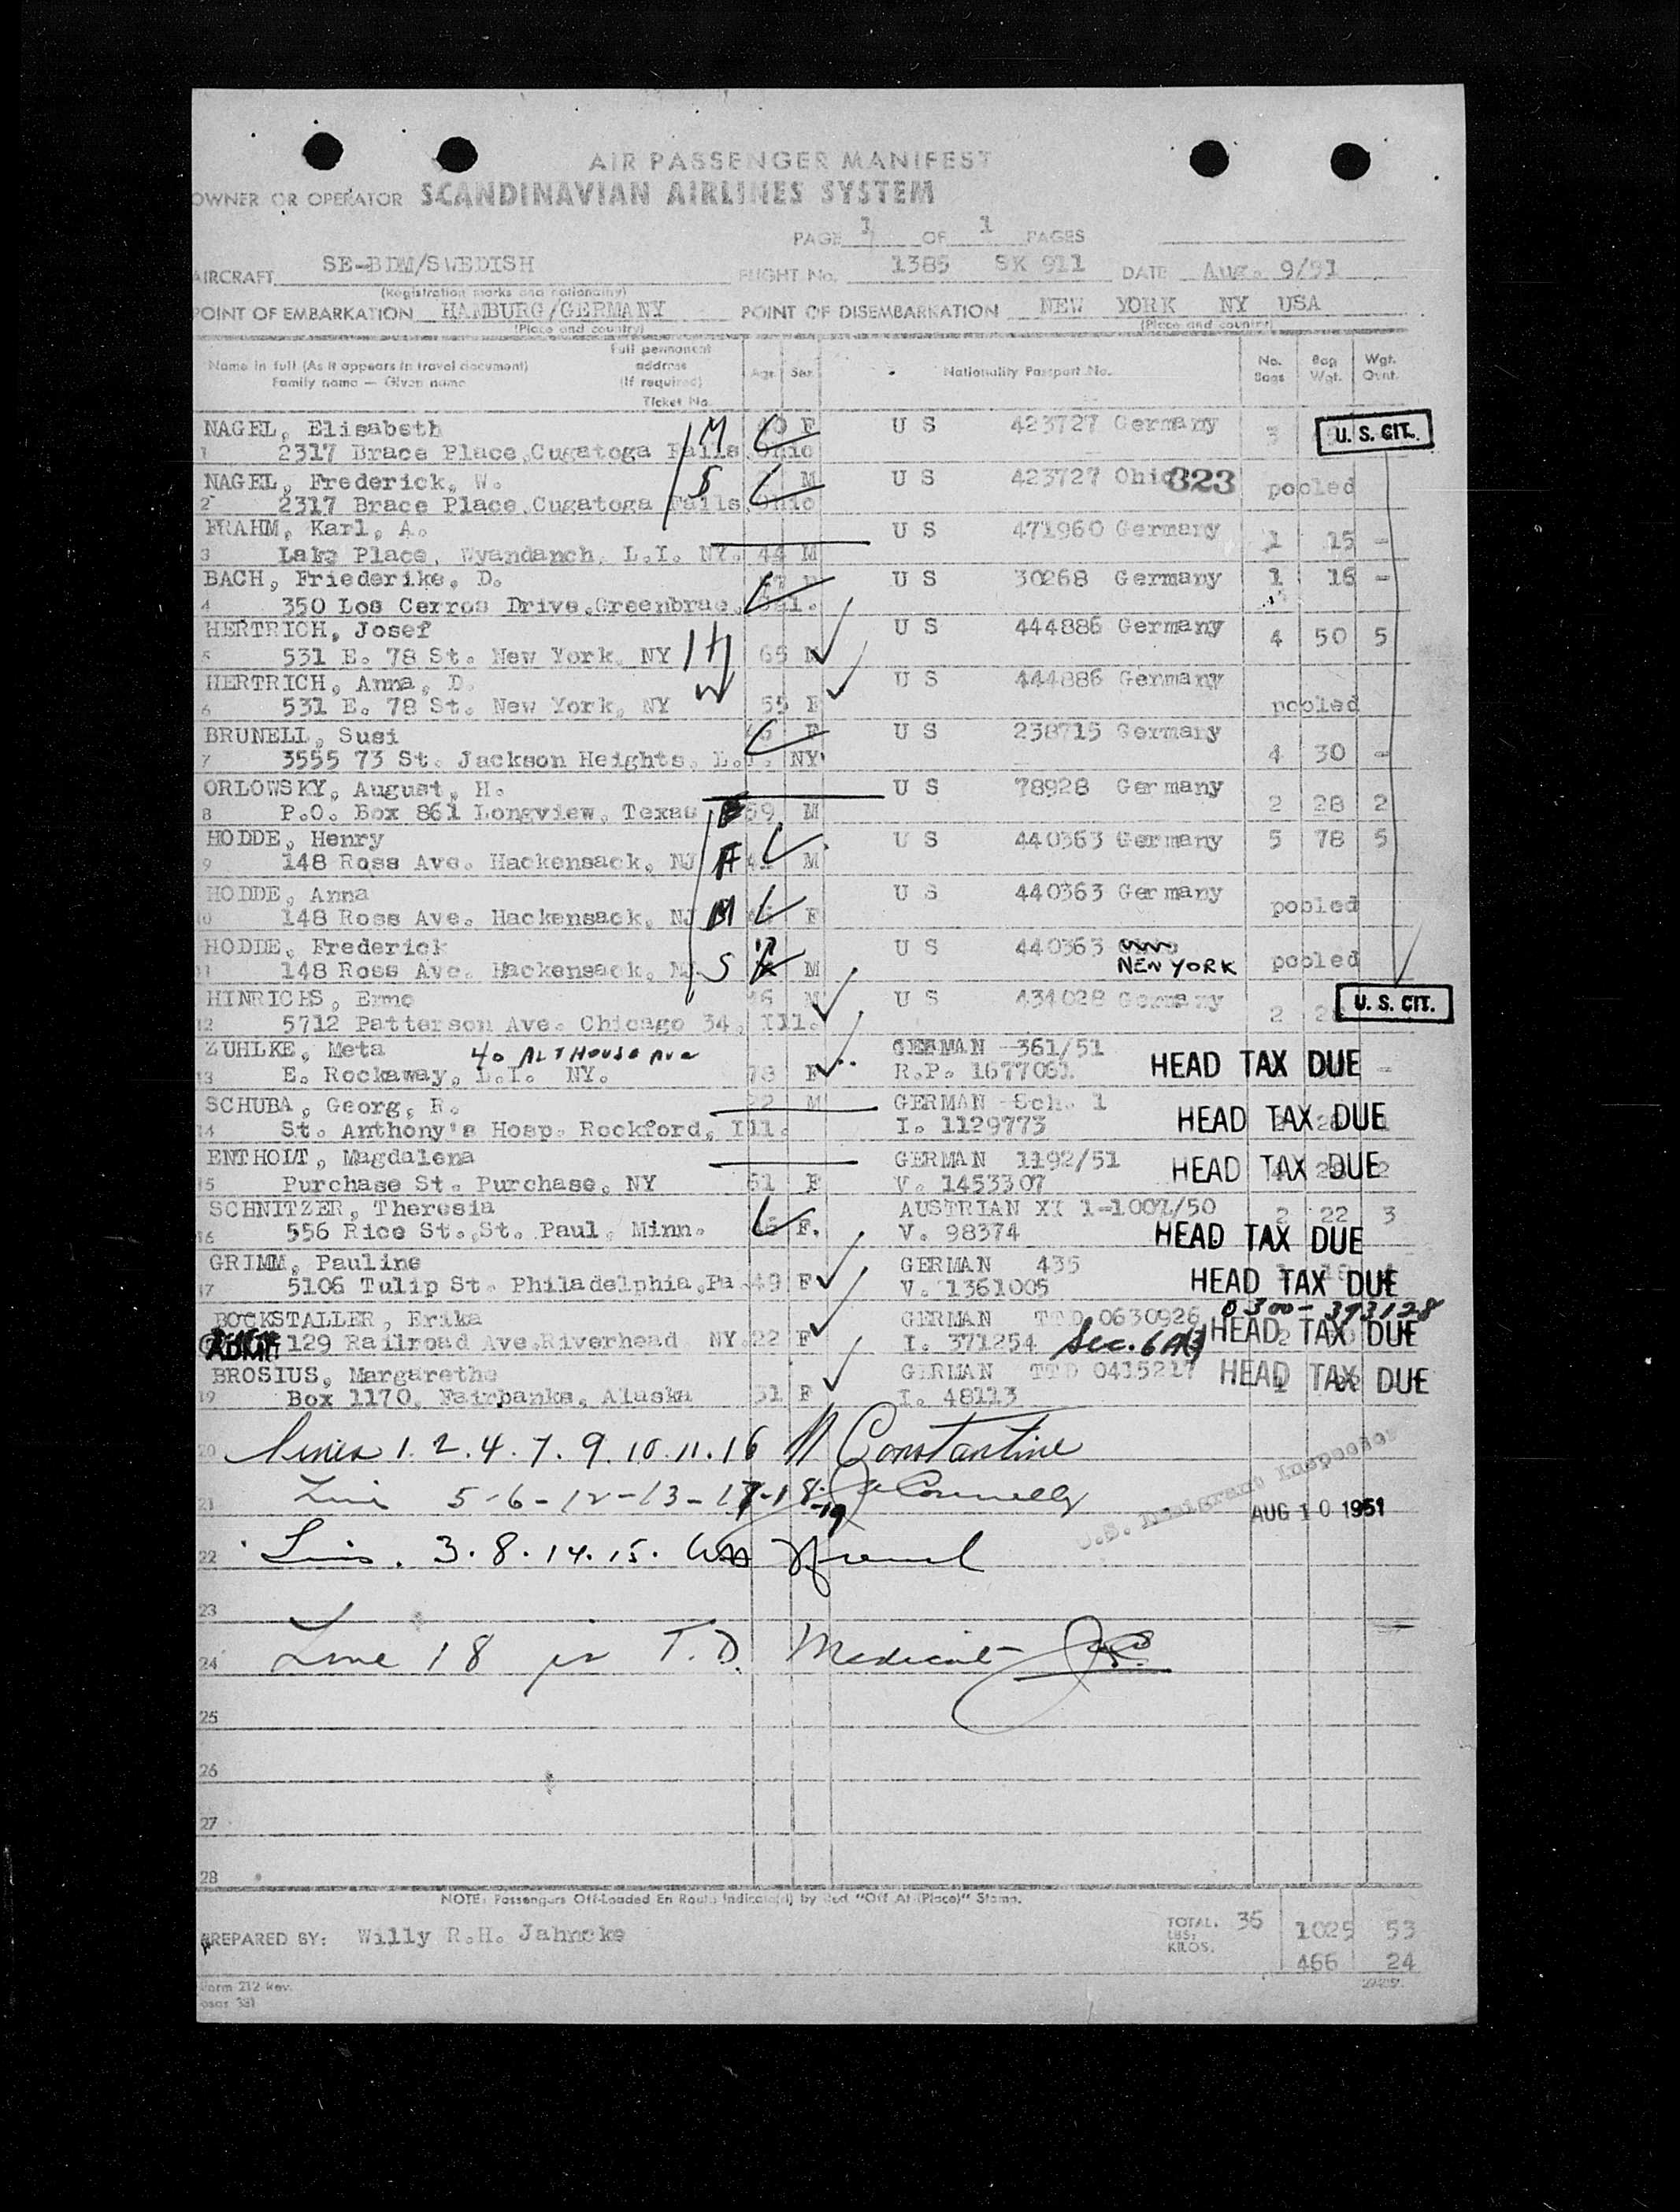 AIR PASSENGER MANIFEST
OWNER OR OPERATOR SCANDINAVIAN AIRLINES SYSTEM
PAGE 1 OF 1 PAGES
AIRCRAFT SE-BDM/SWEDISH FLIGHT No. 1385 SK 911 DATE Aug. 9/51
(Registration marks and nationality)
POINT OF EMBARKATION HAMBURG/GERMANY POINT OF DISEMBARKATION NEW YORK NY USA
(Place and country) (Place and country)
Name in full (As it appears in travel document) Family name — Given name Full permanent address (If required) Ticket No. Age Sex Nationality Passport No. No. Bags Bag Wgt. Wgt. Ovnt.
NAGEL, Elisabeth M F U S 423727 Germany 3 U. S. CIT.
1 2317 Brace Place,Cugatoga Falls,Ohio
NAGEL, Frederick, W. S M U S 423727 Ohio 323 pooled
2 2317 Brace Place,Cugatoga Falls,Ohio
FRAHM, Karl, A. U S 471960 Germany 1 15 -
3 Lake Place, Wyandanch, L.I. NY. 44 M
BACH, Friederike, D. U S 30268 Germany 1 16 -
4 350 Los Cerros Drive,Greenbrae, Cal.
HERTRICH, Josef U S 444886 Germany 4 50 5
5 531 E. 78 St. New York, NY H 65 M
HERTRICH, Anna, D. U S 444886 Germany pooled
6 531 E. 78 St. New York, NY W 55 F
BRUNELL, Susi F U S 238715 Germany
7 3555 73 St. Jackson Heights, L.I. NY 4 30 -
ORLOWSKY, August, H. U S 78928 Germany
8 P.O. Box 861 Longview, Texas 59 M 2 28 2
HODDE, Henry U S 440363 Germany 5 78 5
9 148 Ross Ave. Hackensack, NJ F M
HODDE, Anna U S 440363 Germany pooled
10 148 Ross Ave. Hackensack, NJ M F
HODDE, Frederick U S 440363
11 148 Ross Ave. Hackensack, NJ S M NEW YORK pooled
HINRICHS, Erme M U S 434028 Germany U. S. CIT.
12 5712 Patterson Ave. Chicago 34, Ill. 2
ZUHLKE, Meta 40 ALTHOUSE AVE GERMAN 361/51
13 E. Rockaway, L.I. NY. 78 F R.P. 1677081 HEAD TAX DUE -
SCHUBA, Georg, R. 22 M GERMAN Sch. 1
14 St. Anthony's Hosp. Rockford, Ill. I. 1129773 HEAD TAX DUE
ENTHOLT, Magdalena GERMAN 1192/51
15 Purchase St. Purchase, NY 61 F V. 1453307 HEAD TAX DUE 2
SCHNITZER, Theresia AUSTRIAN XI 1-1007/50 2 22 3
16 556 Rice St.,St. Paul, Minn. F. V. 98374 HEAD TAX DUE
GRIMM, Pauline GERMAN 435
17 5106 Tulip St. Philadelphia,Pa 49 F V. 1361005 HEAD TAX DUE
BOCKSTALLER, Erika GERMAN TTD 0630926 0300-393128
ADMIT 129 Railroad Ave.Riverhead NY.22 F I. 371254 Sec. 6 HEAD TAX DUE
BROSIUS, Margarethe GERMAN TTD 0415217 HEAD TAX DUE
19 Box 1170, Fairbanks, Alaska 31 F I. 48113
20 Lines 1. 2. 4. 7. 9. 10. 11. 16 Constantine
21 Line 5-6-12-13-17-18-19 Connelly U.S. Immigrant Inspector AUG 10 1951
22 Lines. 3. 8. 14. 15.
23
24 Line 18 is T.D. Medical
25
26
27
28
NOTE: Passengers Off-Loaded En Route Indicate(d) by Red "Off At (Place)" Stamp.
PREPARED BY: Willy R.H. Jahncke TOTAL. 35 LBS: 1025 53
KILOS. 466 24
Form 212 Rev.